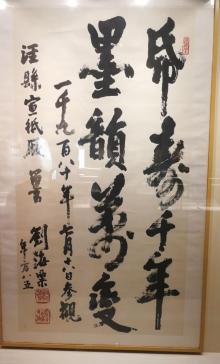 帋壽千年
墨韻萬變
一千九百八十年 月十日參觀
涇縣宣紙廠
劉海粟
年方八五